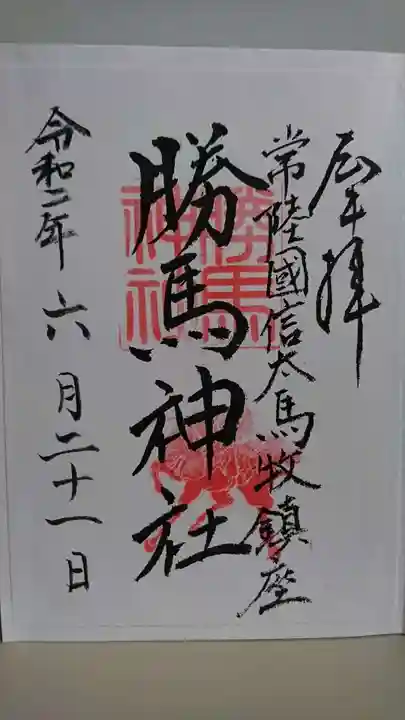 奉拝
常陸國信太馬牧鎮座
勝馬神社
勝馬
神社
令和二年六月二十一日